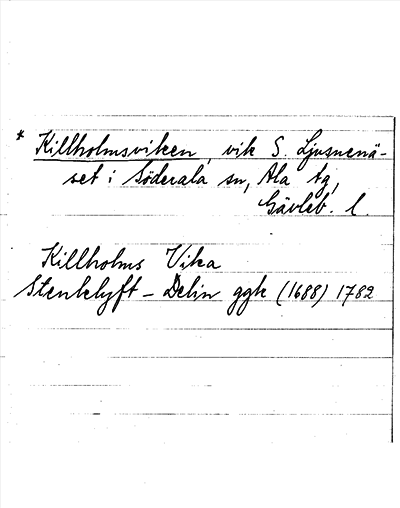 * Killholmsviken, vik S. Ljusnenä-
set i Söderala sn, Ala tg,
Gävleb. l.
Killholms Vika
Stenklyft - Delin ggk (1688) 1782